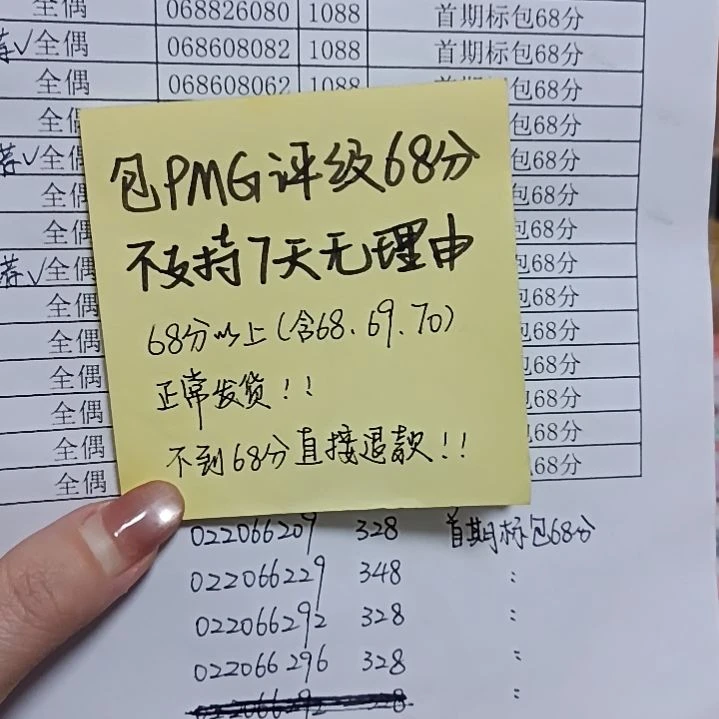 全偶 068826080 1088 首期标包68分
荐√全偶 068608082 1088 首期标包68分
全偶 068608062 1088 首期标包68分
全偶 包68分
荐√全偶 包68分
全偶 包68分
全偶 包68分
荐√全偶 包68分
全偶 包68分
全偶 包68分
全偶 包68分
全偶 包68分
全偶 68分
全偶 68分
包PMG评级68分
不支持7天无理由
68分以上(含68、69、70)
正常发货!!
不到68分直接退款!!
022066209 328 首期标包68分
022066229 348 :
022066292 328 :
022066296 328 :
: